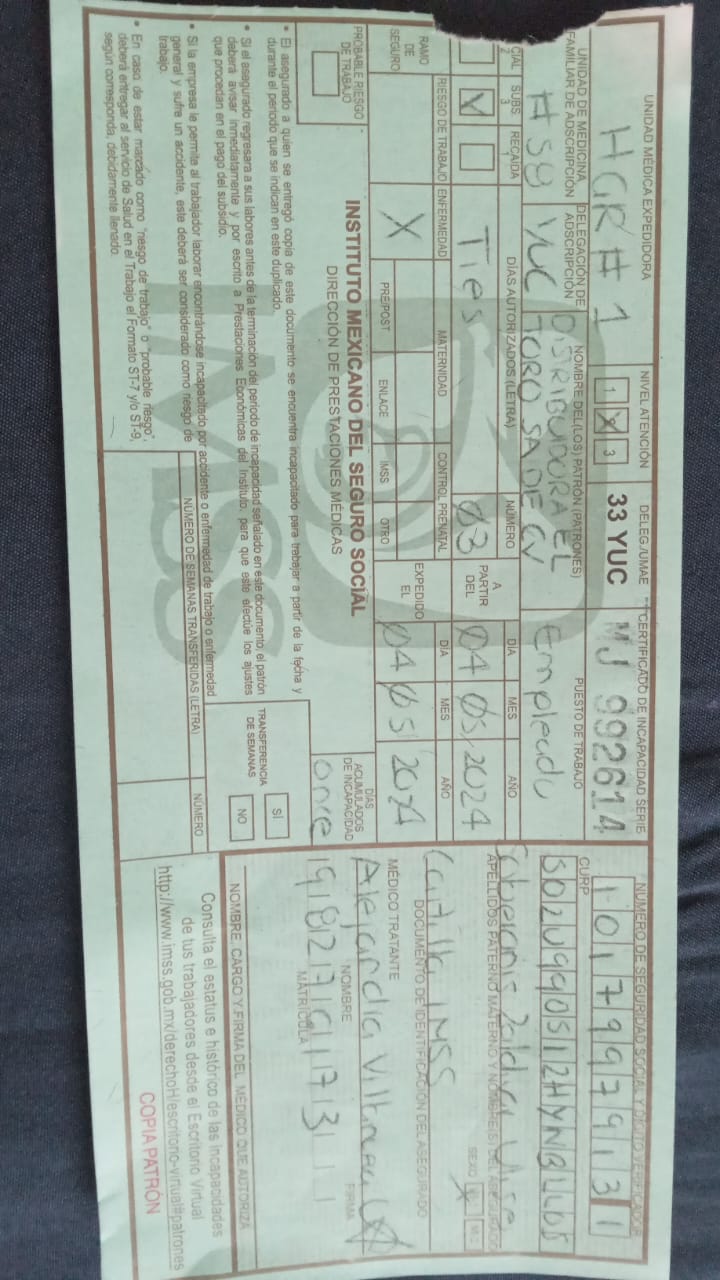 UNIDAD MÉDICA EXPEDIDORA NIVEL ATENCIÓN DELEG./UMAE **CERTIFICADO DE INCAPACIDAD SERIE
HGR # 1 1 X 3 33 YUC MJ 992614
UNIDAD DE MEDICINA FAMILIAR DE ADSCRIPCIÓN DELEGACIÓN DE ADSCRIPCIÓN NOMBRE DEL(LOS) PATRÓN (PATRONES) PUESTO DE TRABAJO
YUC DISTRIBUIDORA EL TORO SA DE CV Empleado
CIAL 2 SUBS. 3 RECAIDA 1 DÍAS AUTORIZADOS (LETRA) NÚMERO A PARTIR DEL DÍA MES AÑO
X Tres 03 04 05 2024
RAMO DE SEGURO RIESGO DE TRABAJO ENFERMEDAD MATERNIDAD CONTROL PRENATAL EXPEDIDO EL DÍA MES AÑO
X PRE/POST ENLACE IMSS OTRO 04 05 2024
PROBABLE RIESGO DE TRABAJO
INSTITUTO MEXICANO DEL SEGURO SOCIAL
DIRECCIÓN DE PRESTACIONES MÉDICAS
DÍAS ACUMULADOS DE INCAPACIDAD
once
• El asegurado a quien se entregó copia de este documento se encuentra incapacitado para trabajar a partir de la fecha y
durante el periodo que se indican en este duplicado.
• Si el asegurado regresara a sus labores antes de la terminación del periodo de incapacidad señalado en este documento, el patrón
deberá avisar inmediatamente y por escrito a Prestaciones Económicas del Instituto, para que este efectúe los ajustes
que procedan en el pago del subsidio.
TRANSFERENCIA DE SEMANAS SÍ NO
• Si la empresa le permita al trabajador laborar encontrándose incapacitado por accidente o enfermedad de trabajo o enfermedad
general y sufre un accidente, este deberá ser considerado como riesgo de
trabajo.
NÚMERO DE SEMANAS TRANSFERIDAS (LETRA) NÚMERO
• En caso de estar marcado como "riesgo de trabajo" o "probable riesgo",
deberá entregar al servicio de Salud en el Trabajo el Formato ST-7 y/o ST-9,
según corresponda, debidamente llenado.
IMSS
NÚMERO DE SEGURIDAD SOCIAL Y DÍGITO VERIFICADOR
1 0 1 7 9 9 7 9 1 3 1
CURP
APELLIDOS PATERNO MATERNO Y NOMBRE(S) DEL ASEGURADO
SEXO
Cartilla IMSS
DOCUMENTO DE IDENTIFICACIÓN DEL ASEGURADO
MÉDICO TRATANTE
Alejandra
NOMBRE FIRMA
MATRÍCULA
NOMBRE, CARGO Y FIRMA DEL MÉDICO QUE AUTORIZA
Consulta el estatus e histórico de las incapacidades
de tus trabajadores desde el Escritorio Virtual
http://www.imss.gob.mx/derechoH/escritorio-virtual#patrones
COPIA PATRÓN